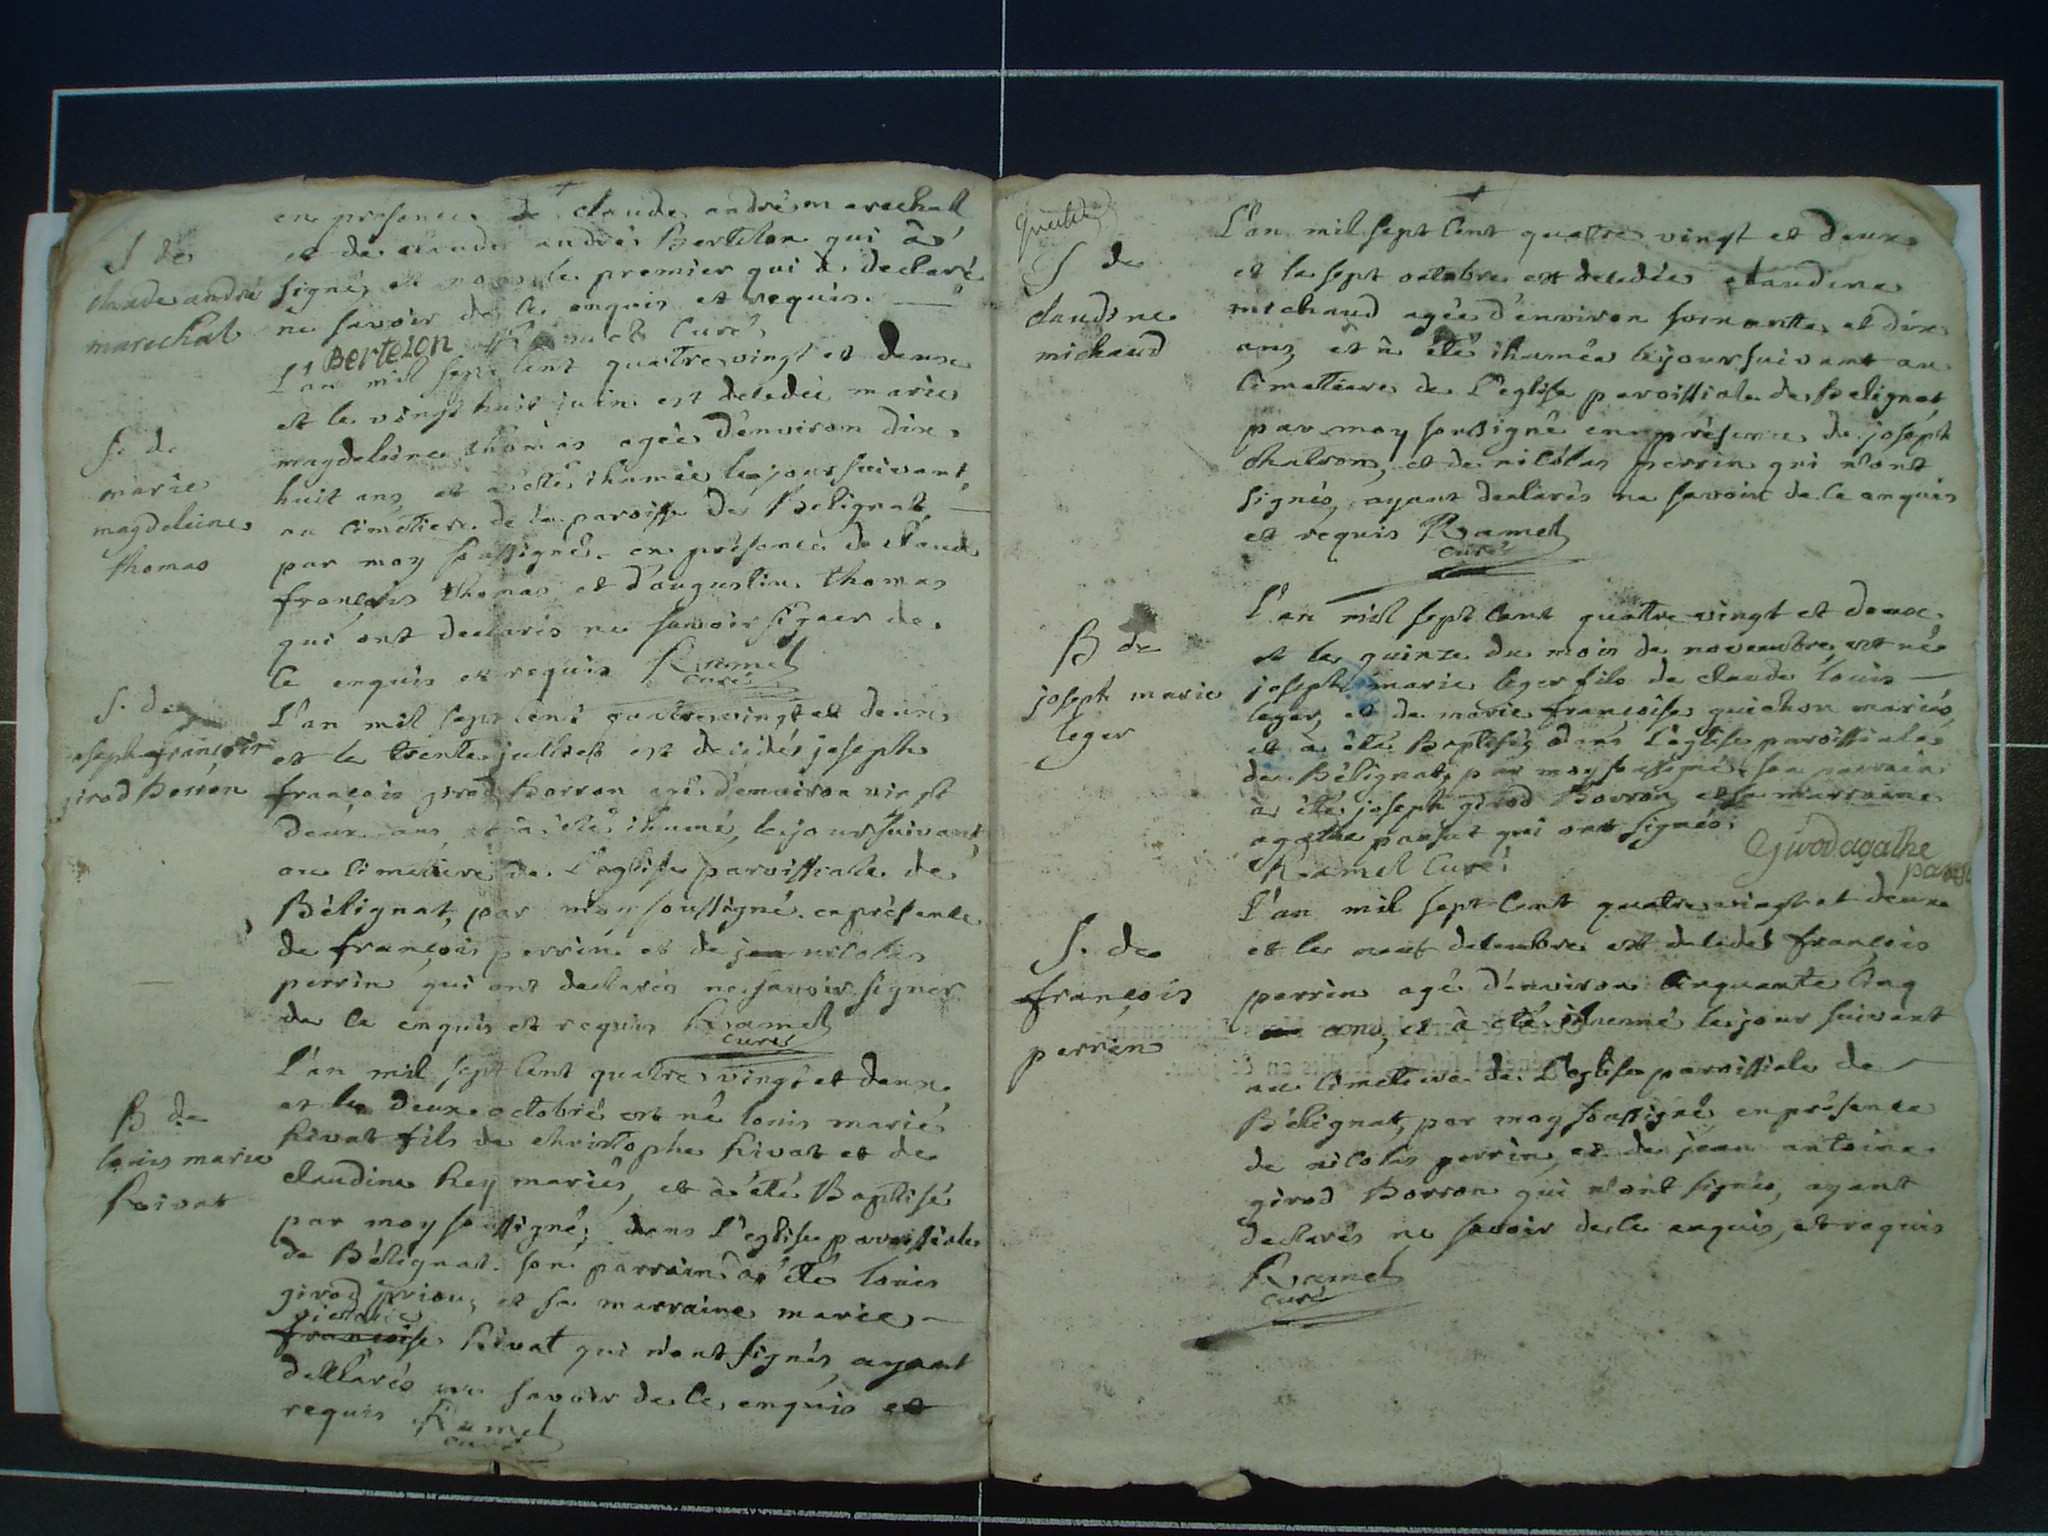 en presence de claude andré marechal
et de claude andré Bertelon qui a
signé, et non le premier qui a declaré
ne savoir de ce enquis et requis.
Bertelon Ramel Curé
S de
claude andré
marechal
L'an mil sept cent quatre vingt et deux
et le vingt huit juin est decedée marie
magdeleine thomas agée d'environ dix
huit ans et a été ihumée le jour suivant
au cimetiere de la paroisse de Belignat
par moy soussigné en presence de claude
françois thomas et d'augustin thomas
qui ont declarés ne savoir signer de
ce enquis et requis Ramel
curé
S. de
marie
magdeleine
thomas
L'an mil sept cent quatre vingt et deux
et le trente julliet est decedé joseph
françois girod Borron agé d'environ vingt
deux ans et a été ihumé, le jour suivant,
au cimetiere de L'eglise paroissialle de
Bélignat, par moy soussigné en présence
de françois perrin et de jean nicolas
perrin qui ont declarés ne savoir signer
de ce enquis et requis Ramel
curé
S. de
joseph françois
girod Borron
L'an mil sept cent quatre vingt et deux
et le deux octobre est né louis marie
Rivat fils de christophe Rivat et de
claudine Rey mariés, et a été Baptisé
par moy soussigné, dans L'eglise paroissiale
de Bélignat. son parrain a été louis
girod priou, et sa marraine marie
françoise Rivat qui n'ont signés, ayant
declarés ne savoir de ce enquis et
requis Ramel
curé
B de
louis marie
Rivat
L'an mil sept cent quatre vingt et deux
et le sept octobre est decedée claudine
michaud agée d'environ soixante et dix
ans, et a été ihumée le jour suivant au
cimetiere de L'eglise paroissiale de Belignat
par moy soussigné en présence de joseph
chalvon, et de nicolas perrin qui n'ont
signés, ayant declarés ne savoir de ce enquis
et requis Ramel
curé
S de
claudine
michaud
L'an mil sept cent quatre vingt et deux
et le quinze du mois de novembre est né
joseph marie leger fils de claude louis
leger, et de marie françoise guichon mariés
et a été Baptisé, dans L'eglise paroissiale
de Bélignat, par moy soussigné. son parrain
a été joseph girod Borron, et sa marraine
agathe pansut qui ont signés.
Ramel Curé Girod agathe
B de
joseph marie
leger
L'an mil sept cent quatre vingt et deux
et le neuf decembre est decedé françois
perrin agé d'environ cinquante cinq
ans, et a été ihumé le jour suivant
au cimetiere de L'eglise paroissiale de
Bélignat, par moy soussigné en présence
de nicolas perrin, et de jean antoine
girod Borron qui n'ont signés, ayant
declarés ne savoir de ce enquis, et requis
Ramel
curé
S. de
françois
perrin